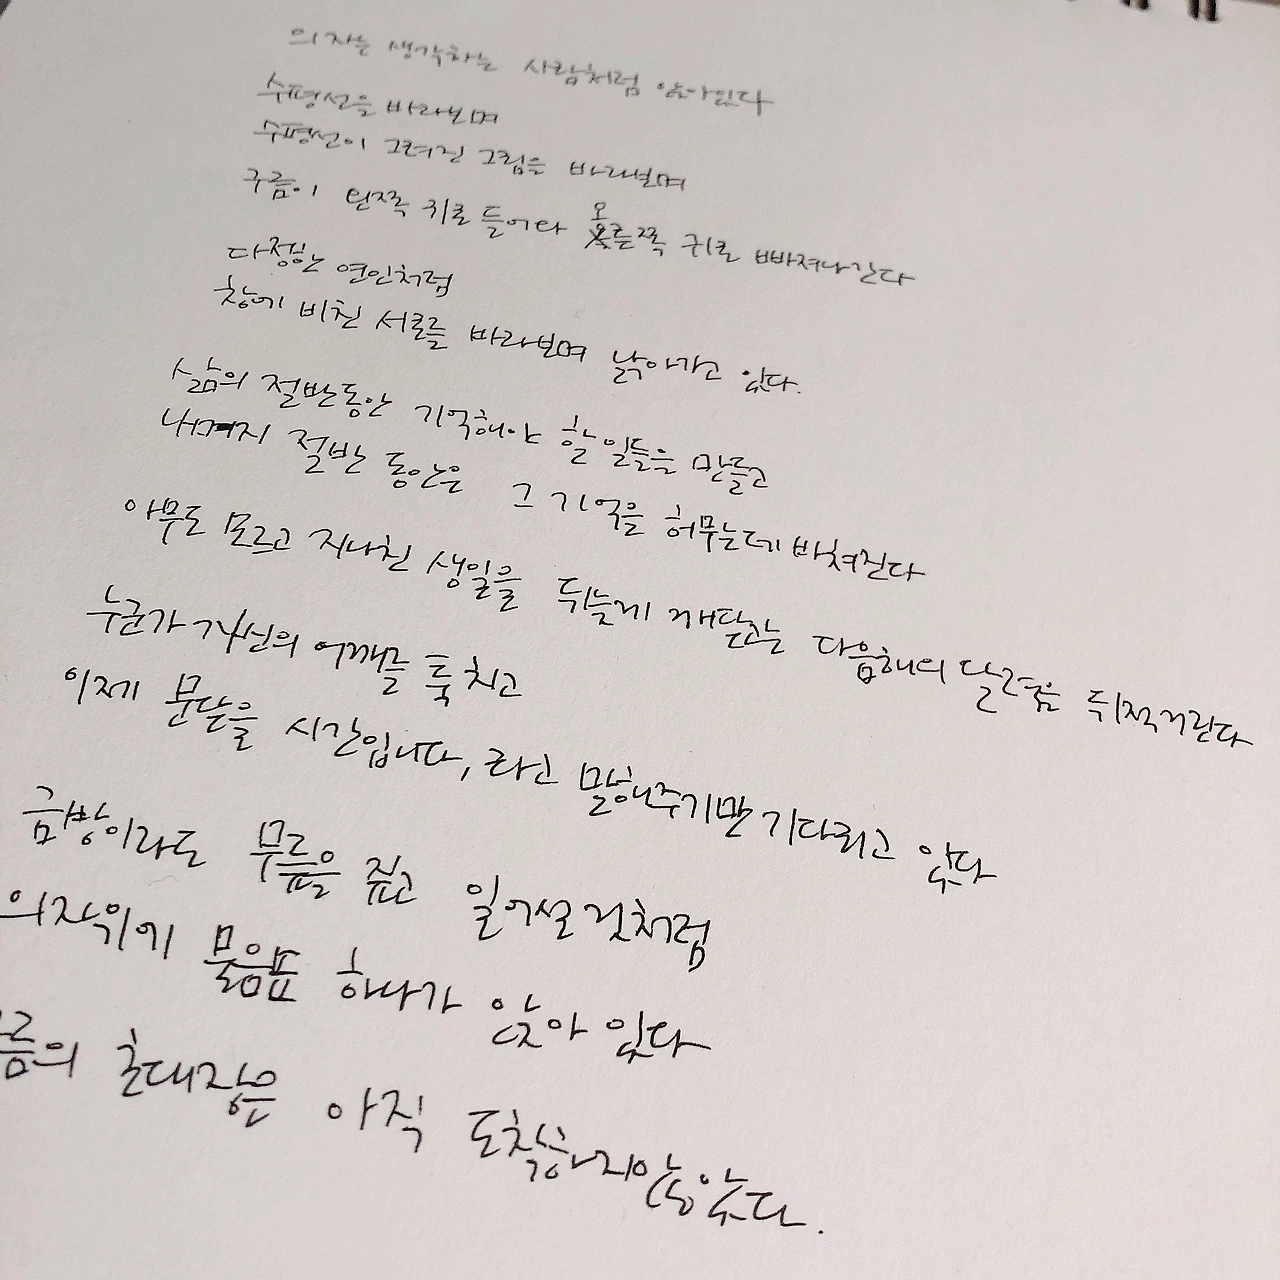 의자는 생각하는 사람처럼 앉아있다
수평선을 바라보며
수평선이 그려진 그림을 바라보며
구름이 왼쪽 귀로 들어와 오른쪽 귀로 빠져나간다
다정한 연인처럼
창에 비친 서로를 바라보며 낡아가고 있다.
삶의 절반동안 기억해야 할 일들을 만들고
나머지 절반 동안은 그 기억을 허무는데 바쳐진다
아무도 모르고 지나친 생일을 뒤늦게 깨닫는 다음해의 달력을 뒤적거린다
누군가 자신의 어깨를 툭 치고
이제 문 닫을 시간입니다, 라고 말해주기만 기다리고 있다
금방이라도 무릎을 짚고 일어설 것처럼
의자위에 물음표 하나가 앉아 있다
구름의 초대장은 아직 도착하지 않았다.